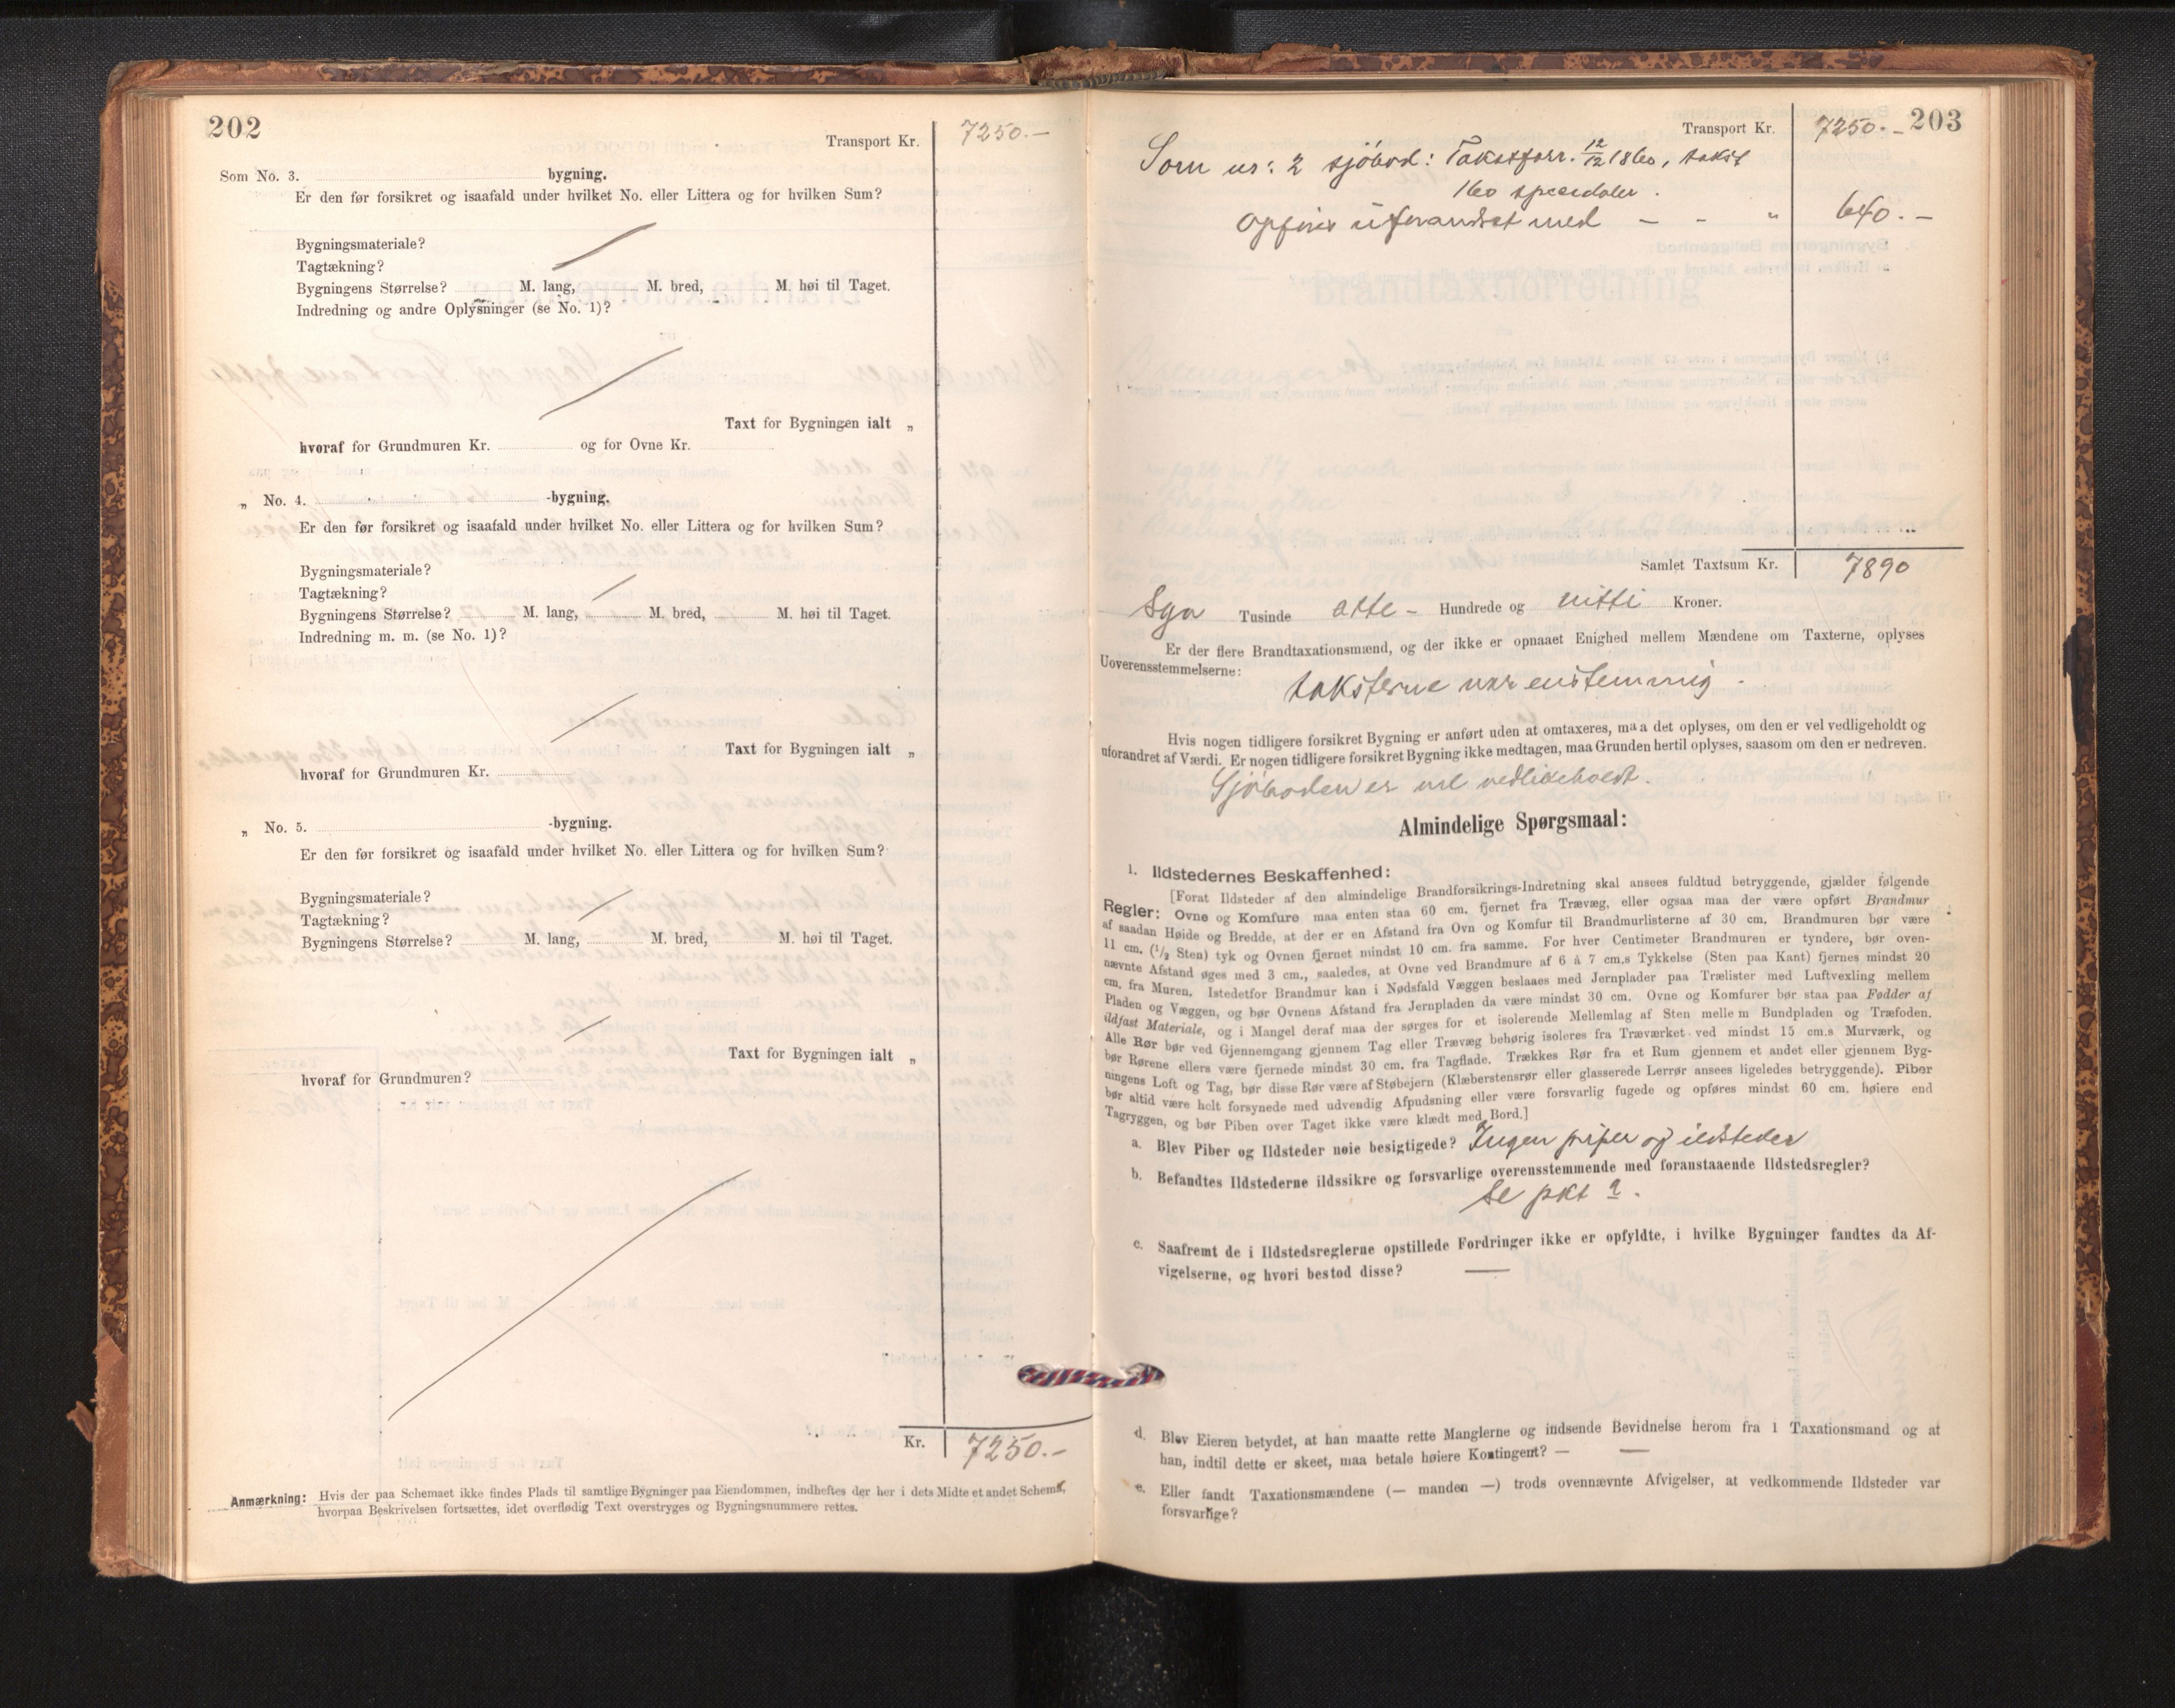 202
Transport Kr. 7250.-
Som No. 3. bygning.
Er den før forsikret og isaafald under hvilket No. eller Littera og for hvilken Sum?
Bygningsmateriale?
Tagtækning?
Bygningens Størrelse? M. lang, M. bred, M. høi til Taget.
Indredning og andre Oplysninger (se No. 1)?
Taxt for Bygningen ialt „
hvoraf for Grundmuren Kr. og for Ovne Kr.
„ No. 4. -bygning.
Er den før forsikret og isaafald under hvilket No. eller Littera og for hvilken Sum?
Bygningsmateriale?
Tagtækning?
Bygningens Størrelse? M. lang, M. bred, M. høi til Taget.
Indredning m. m. (se No. 1)?
Taxt for Bygningen ialt „
hvoraf for Grundmuren Kr.
„ No. 5. -bygning.
Er den før forsikret og isaafald under hvilket No. eller Littera og for hvilken Sum?
Bygningsmateriale?
Tagtækning?
Bygningens Størrelse? M. lang, M. bred, M. høi til Taget.
Taxt for Bygningen ialt „
hvoraf for Grundmuren?
Kr. 7250.-
Anmærkning: Hvis der paa Schemaet ikke findes Plads til samtlige Bygninger paa Eiendommen, indheftes der her i dets Midte et andet Schema,
hvorpaa Beskrivelsen fortsættes, idet overflødig Text overstryges og Bygningsnummere rettes.
203
Transport Kr. 7250.-
Som nr: 2 sjöbod: Takstforr. 12/12 1860, takst
160 speciedaler.
Opføres uforandret med - - " 640.-
Samlet Taxtsum Kr. 7890
Syv Tusinde otte - Hundrede og nitti Kroner.
Er der flere Brandtaxationsmænd, og der ikke er opnaaet Enighed mellem Mændene om Taxterne, oplyses
Uoverensstemmelserne:
taksterne var enstemmig.
Hvis nogen tidligere forsikret Bygning er anført uden at omtaxeres, maa det oplyses, om den er vel vedligeholdt og
uforandret af Værdi. Er nogen tidligere forsikret Bygning ikke medtagen, maa Grunden hertil oplyses, saasom om den er nedreven.
Sjöboden er vel vedlikeholdt.
Almindelige Spørgsmaal:
1. Ildstedernes Beskaffenhed:
[Forat Ildsteder af den almindelige Brandforsikrings-Indretning skal ansees fuldtud betryggende, gjælder følgende
Regler: Ovne og Komfure maa enten staa 60 cm. fjernet fra Trævæg, eller ogsaa maa der være opført Brandmur
af saadan Høide og Bredde, at der er en Afstand fra Ovn og Komfur til Brandmurlisterne af 30 cm. Brandmuren bør være
11 cm. (1/2 Sten) tyk og Ovnen fjernet mindst 10 cm. fra samme. For hver Centimeter Brandmuren er tyndere, bør oven-
nævnte Afstand øges med 3 cm., saaledes, at Ovne ved Brandmure af 6 à 7 cm.s Tykkelse (Sten paa Kant) fjernes mindst 20
cm. fra Muren. Istedetfor Brandmur kan i Nødsfald Væggen beslaaes med Jernplader paa Trælister med Luftvexling mellem
Pladen og Væggen, og bør Ovnens Afstand fra Jernpladen da være mindst 30 cm. Ovne og Komfurer bør staa paa Fødder af
ildfast Materiale, og i Mangel deraf maa der sørges for et isolerende Mellemlag af Sten mellem Bundpladen og Træfoden.
Alle Rør bør ved Gjennemgang gjennem Tag eller Trævæg behørig isoleres fra Træværket ved mindst 15 cm.s Murværk, og
bør Rørene ellers være fjernede mindst 30 cm. fra Tagflade. Trækkes Rør fra et Rum gjennem et andet eller gjennem Byg-
ningens Loft og Tag, bør disse Rør være af Støbejern (Klæberstensrør eller glasserede Lerrør ansees ligeledes betryggende). Piber
bør altid være helt forsynede med udvendig Afpudsning eller være forsvarlig fugede og opføres mindst 60 cm. høiere end
Tagryggen, og bør Piben over Taget ikke være klædt med Bord.]
a. Blev Piber og Ildsteder nøie besigtigede? Ingen piper og ildsteder
b. Befandtes Ildstederne ildssikre og forsvarlige overensstemmende med foranstaaende Ildstedsregler?
Se pkt a.
c. Saafremt de i Ildstedsreglerne opstillede Fordringer ikke er opfyldte, i hvilke Bygninger fandtes da Af-
vigelserne, og hvori bestod disse? —
d. Blev Eieren betydet, at han maatte rette Manglerne og indsende Bevidnelse herom fra 1 Taxationsmand og at
han, indtil dette er skeet, maa betale høiere Kontingent? — —
e. Eller fandt Taxationsmændene (— manden —) trods ovennævnte Afvigelser, at vedkommende Ildsteder var
forsvarlige?